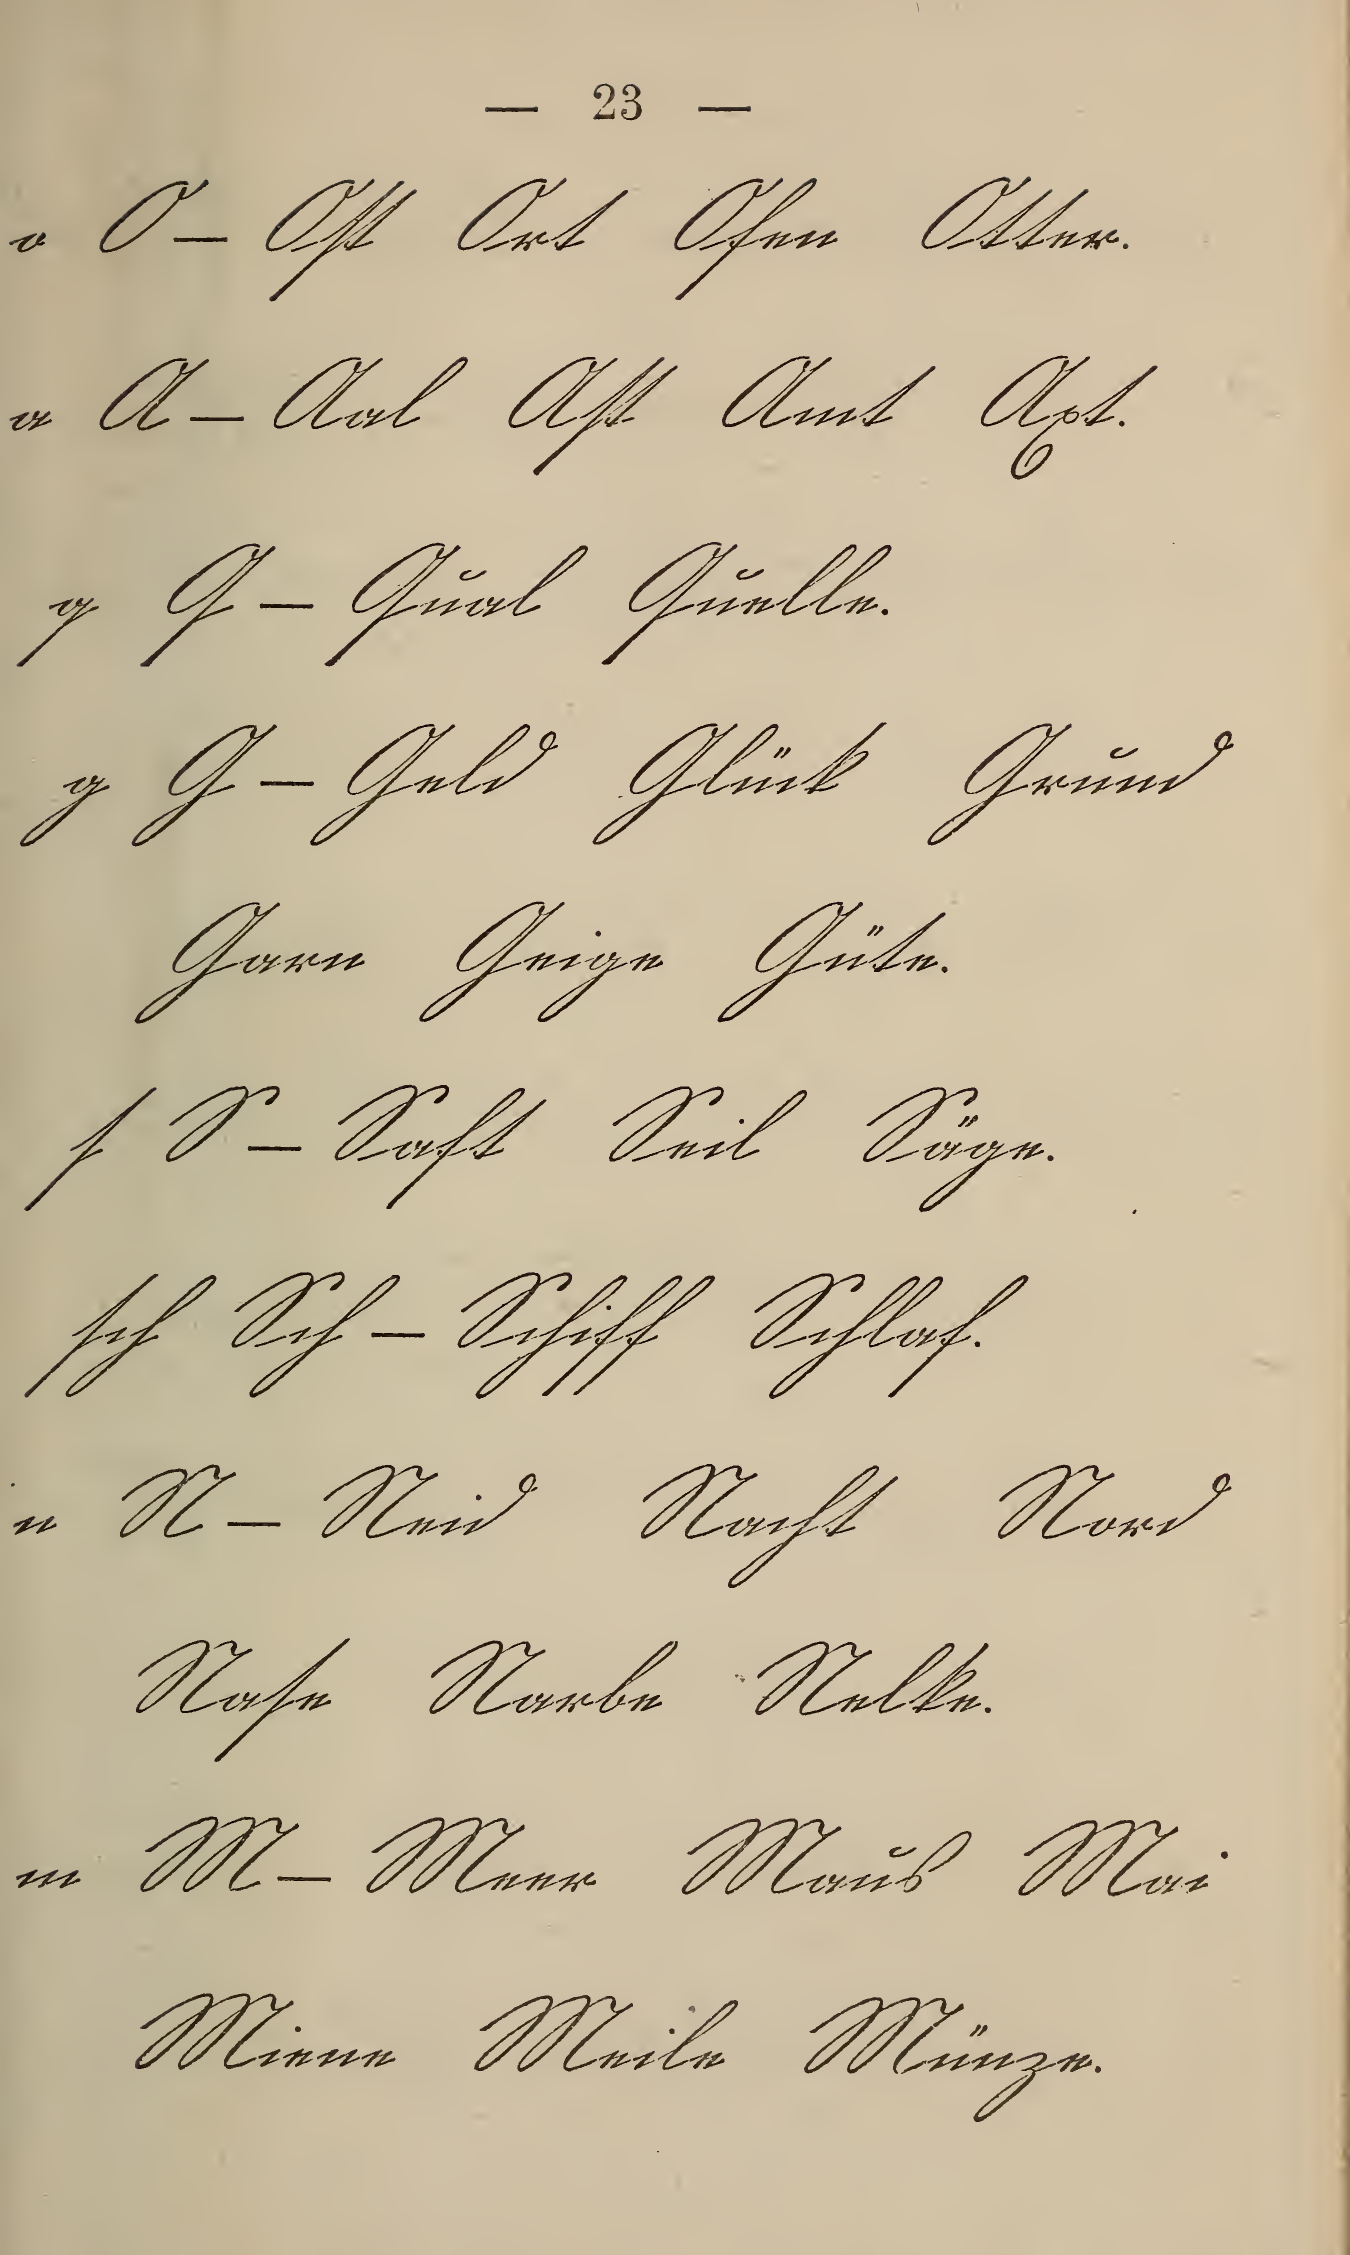 — 23 —
o O – Ost Ort Ofen Otter.
a A – Aal Ast Amt Axt.
q Q – Qual Quelle.
g G – Geld Glück Grund
Garn Geige Güte.
ſ S – Saft Seil Säge.
ſch Sch – Schiff Schlaf.
n N – Neid Nacht Nord
Naſe Narbe Nelke.
m M – Meer Maus Mai
Miene Meile Münze.